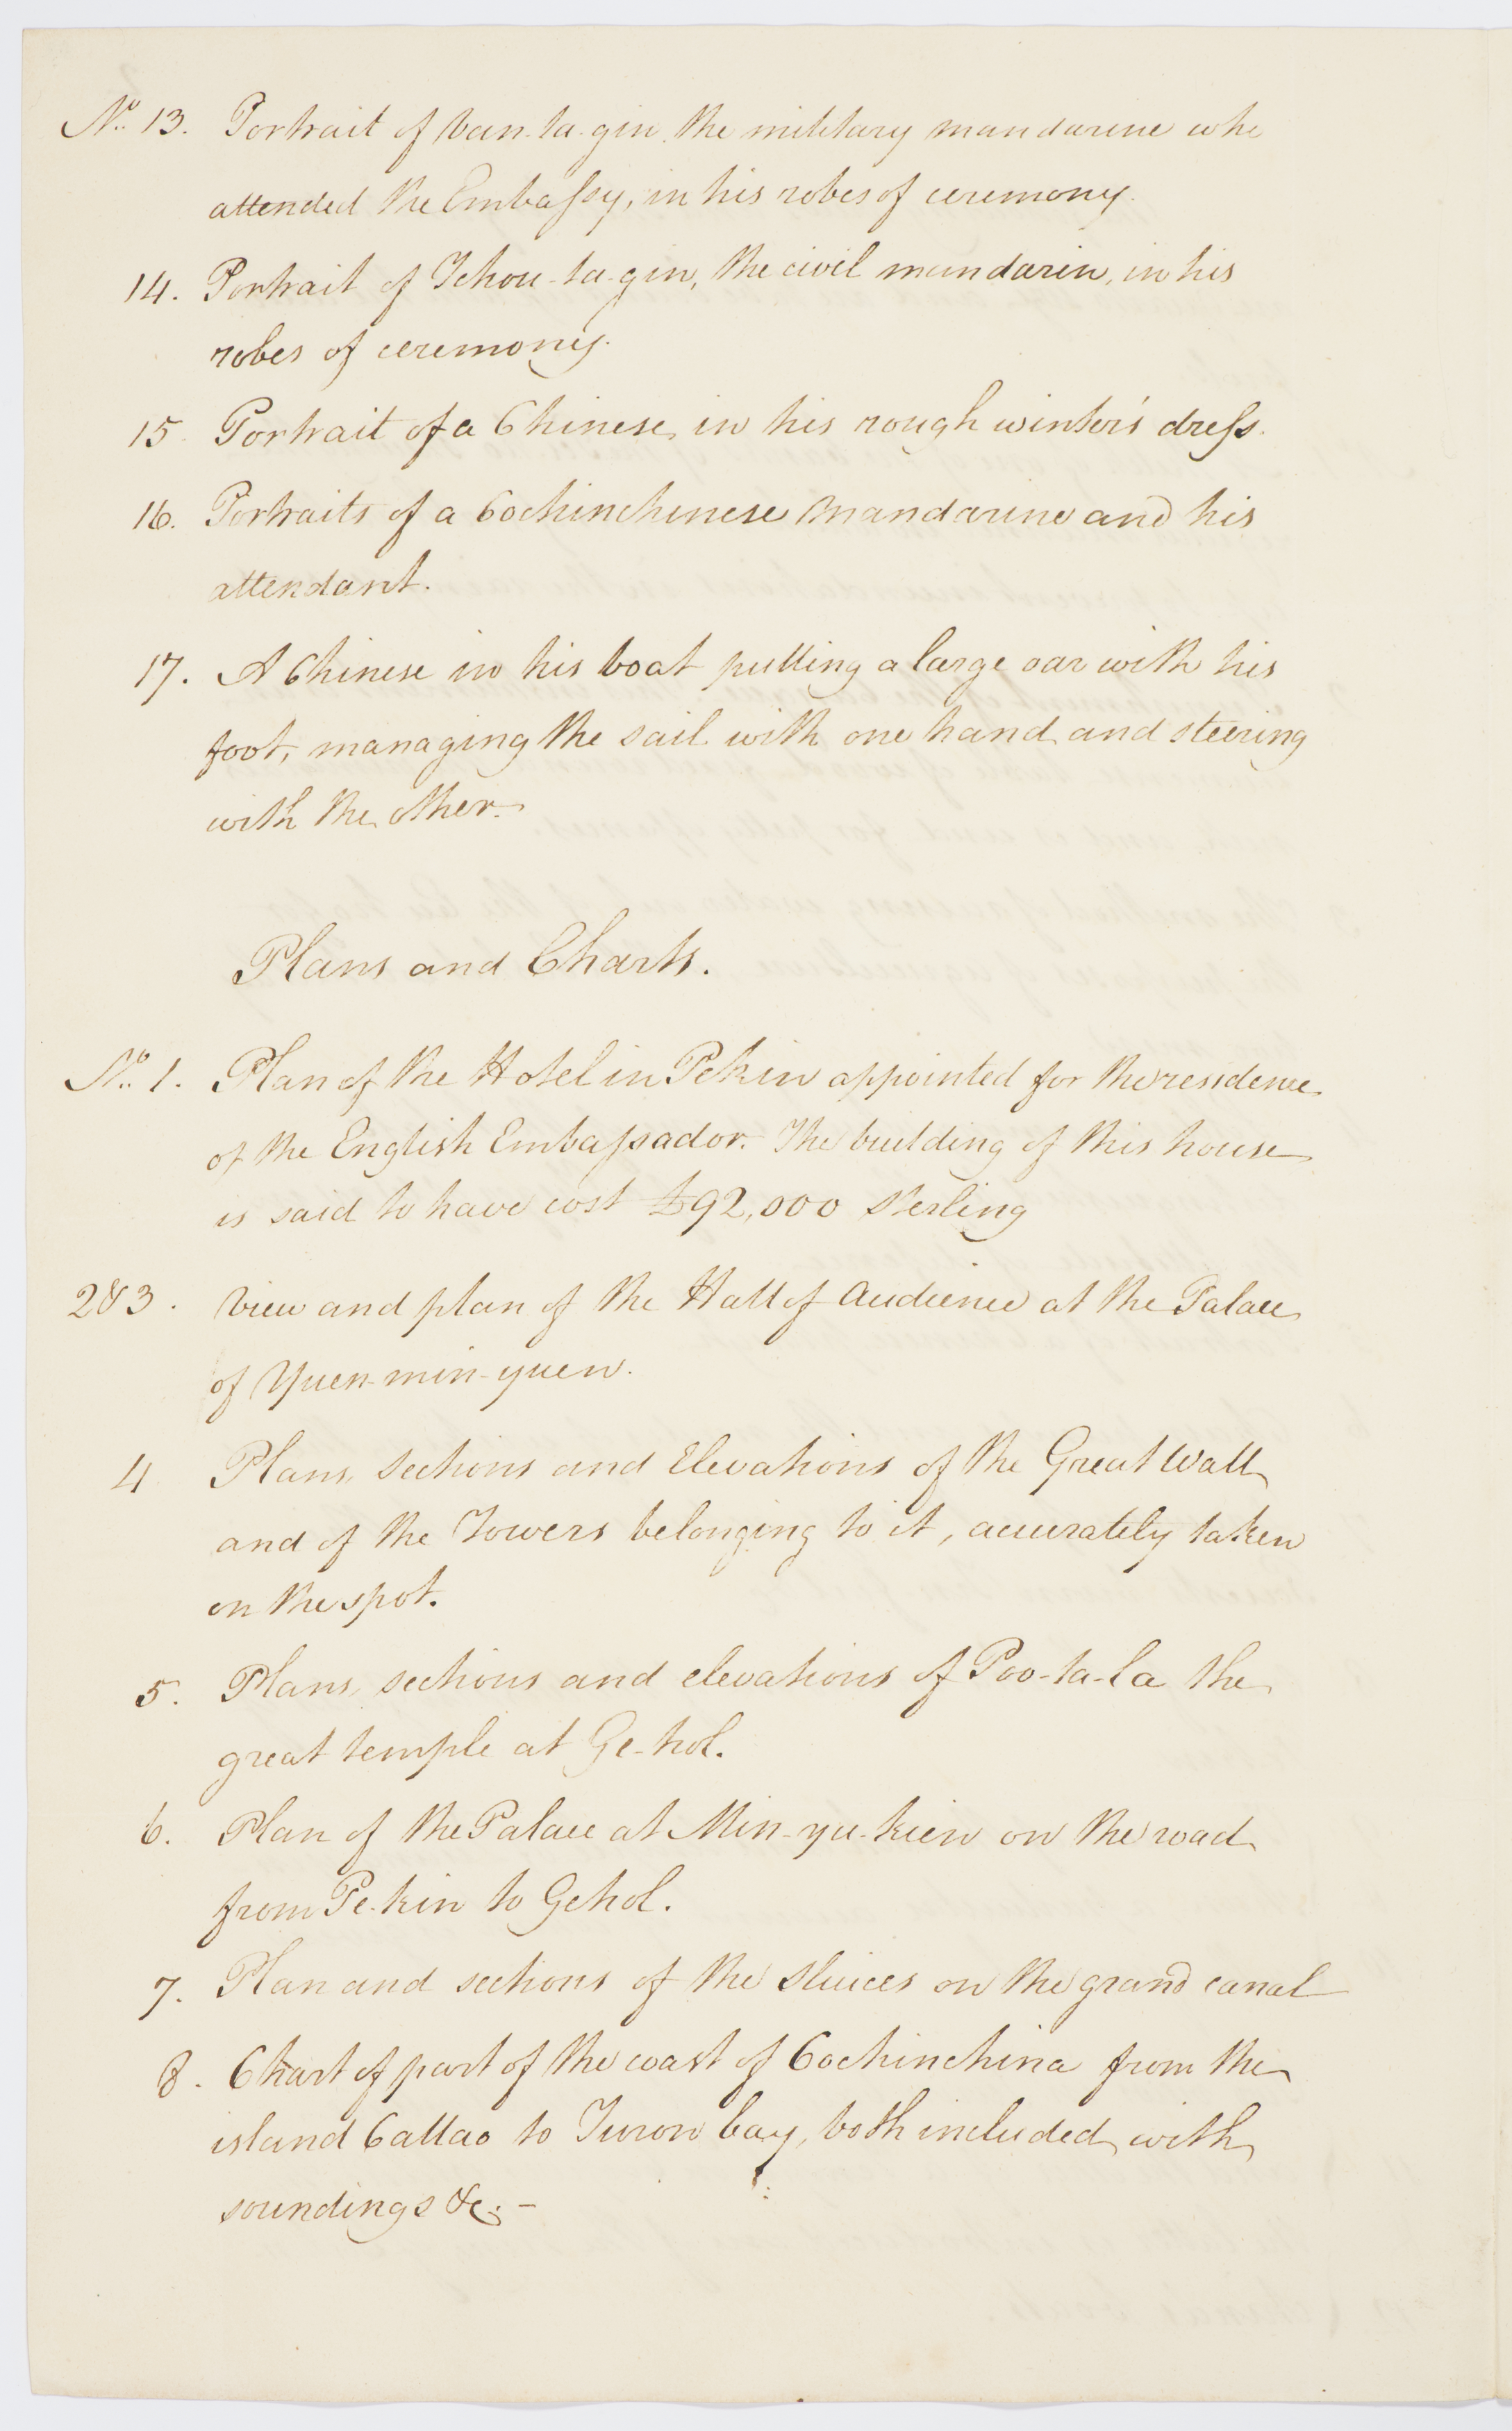 No. 13. Portrait of Van-ta-gin the military mandarine who
attended the Embaſsy, in his robes of ceremony.
14. Portrait of Tchou-ta-gin, the civil mandarin, in his
robes of ceremony.
15. Portrait of a Chinese in his rough winter's dreſs.
16. Portraits of a Cochinchinese Mandarine and his
attendant.
17. A Chinese in his boat pulling a large oar with his
foot, managing the sail with one hand and steering
with the other.
Plans and Charts.
No. 1. Plan of the Hotel in Pekin appointed for the residence
of the English Embaſsador. The building of this house
is said to have cost £92,000 Sterling
2 & 3. View and plan of the Hall of Audience at the Palace
of Yuen-min-yuen.
4 Plans, Sections and Elevations of the Great Wall
and of the Towers belonging to it, accurately taken
on the spot.
5. Plans, sections and elevations of Poo-ta-la the
great temple at Ge-hol.
6. Plan of the Palace at Min-yu-kien on the road
from Pe-kin to Gehol.
7. Plan and sections of the Sluices on the grand canal
8. Chart of part of the coast of Cochinchina from the
island Callao to Turon bay, both included, with
soundings &c. –